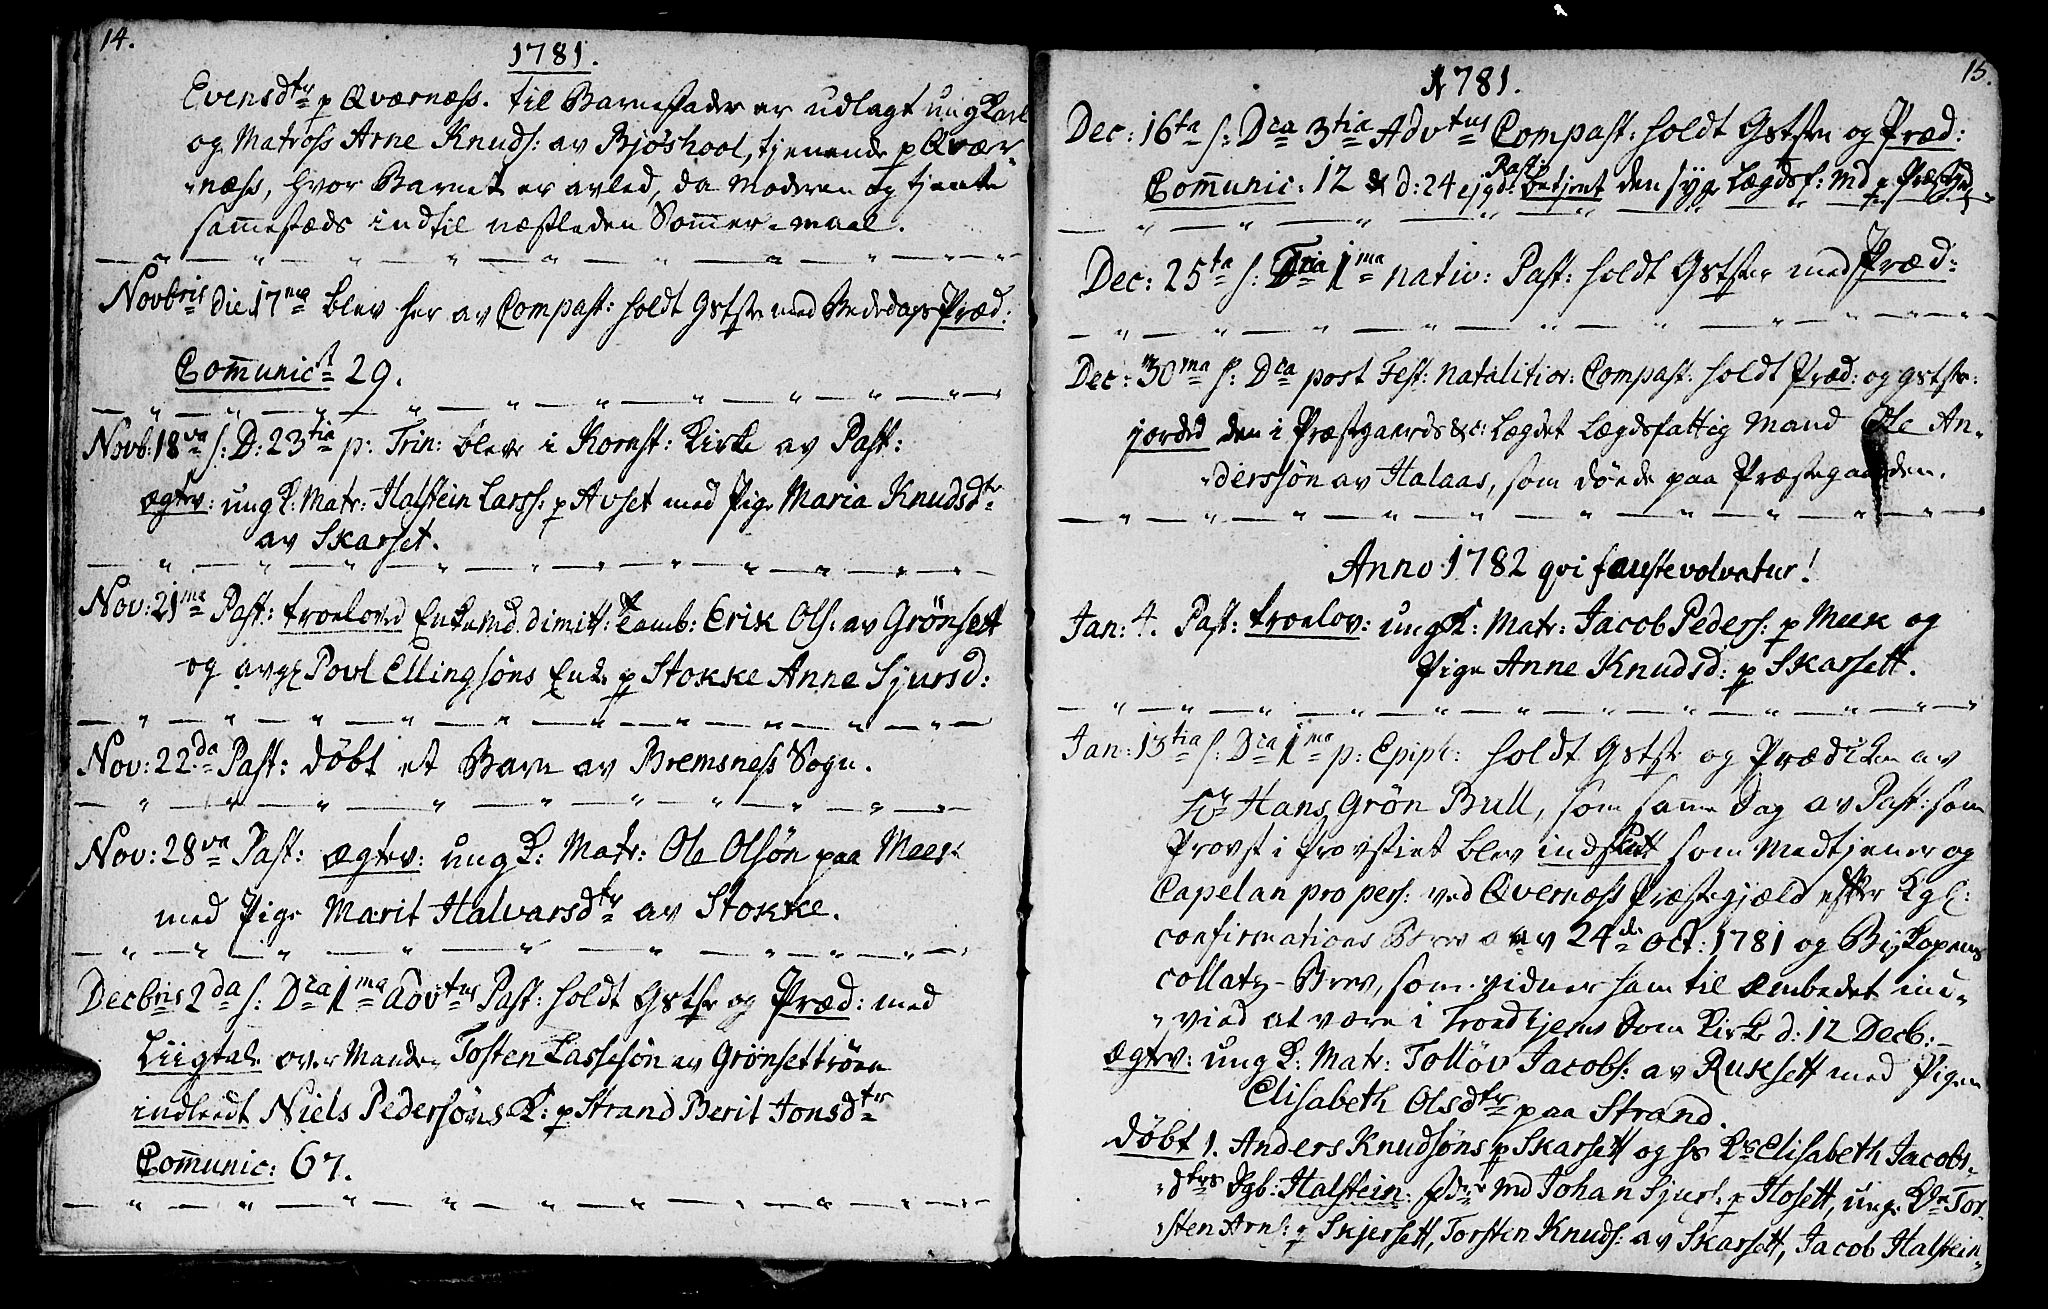 14.
1781.
Evensdtr p Qværnæss. til Barnefader er udlagt ung Karl
og Matros Arne Knuds: av Bjøshool, tjenende p Qvær-
næss, hvor Barnet er avled, da Moderen og tjente
sammestæds indtil næstleden Sommer-maal.
Novbris die 17na blev her av Compast: holdt Gstste med Bededags Præd:
Communicst 29.
Novb: 18va s: D: 23tia p: Trin: blev i Kornst: Kirke av Past:
ægtev: ung K: Matr: Halstein Larss: p Avset med Pige Maria Knudsdtr
av Skarset.
Nov: 21ma Past: troelovd Enkemd dimitt: Erik Ols: av Grönsett
og avgl Povl Ellingsöns Enke p Stokke Anne Sjursd:
Nov: 22da Past: döbt et Barn av Bremsness Sogn.
Nov: 28va Past: ægtev: ung K: Matr: Ole Olsön paa Meek
med Pige Marit Halvarsdtr av Stokke.
Decbris 2da s: Dca 1ma Advtus Past: holdt Gstste og Præd: med
Liigtale over Manden Tosten Lassesön av Grönsettröen
indleedt Niels Pedersöns K: p Strand Berit Jonsdtr
Communic: 67.
15.
1781.
Dec: 16ta s: Dca 3tia Advtus Compast: holdt Gstste og Præd:
Communic: 12 d: 24 ejqd: Past: betjent den syge Lægdsf: Md p Præstgd
Dec: 25ta s: Fria 1ma nativ: Past: holdt Gstste med Præd:
Dec: 30ma s: Dca post Fest: Natalitior: Compast: holdt Præd: og Gstste:
jorded den i Præstgaards &c: Lægdet Lægdsfattig Mand Ole An-
derssön av Halaas, som döede paa Præstegaarden.
Anno 1782 qvi fauste volvatur!
Jan: 4. Past: troelov: ung K: Matr: Jacob Peders: p Meek og
Pige Anne Knudsd: p Skarsett.
Jan: 13tia s: Dca 1ma p: Epiph: holdt Gstste og Prædiken av
Hr Hans Grön Bull, som samme Dag av Past: som
Provst i Provstiet blev indsatt som Medtjener og
Capelan pro pers: ved Qvernæss Præstegjæld efter Kgl:
confirmations Brev av 24de Oct: 1781 og Biskopens
collatz-Brev, som vidner ham til Embedet ind-
vied at være i Trondhjems Dom Kirke d: 12 Decb:
ægtev: ung K: Matr: Tollöv Jacobs: av Ruksett med Pigen
Elisabeth Olsdtr paa Strand.
Döbt 1. Anders Knudsöns p Skarsett og hs Ks Elisabeth Jacobs-
dtrs Dgb: Halstein: fdre Md Johan Sjurs: p Hosett, ung K Tor-
sten Arns: p Skjersett, Torsten Knuds: av Skarsett, Jacob Halstein-